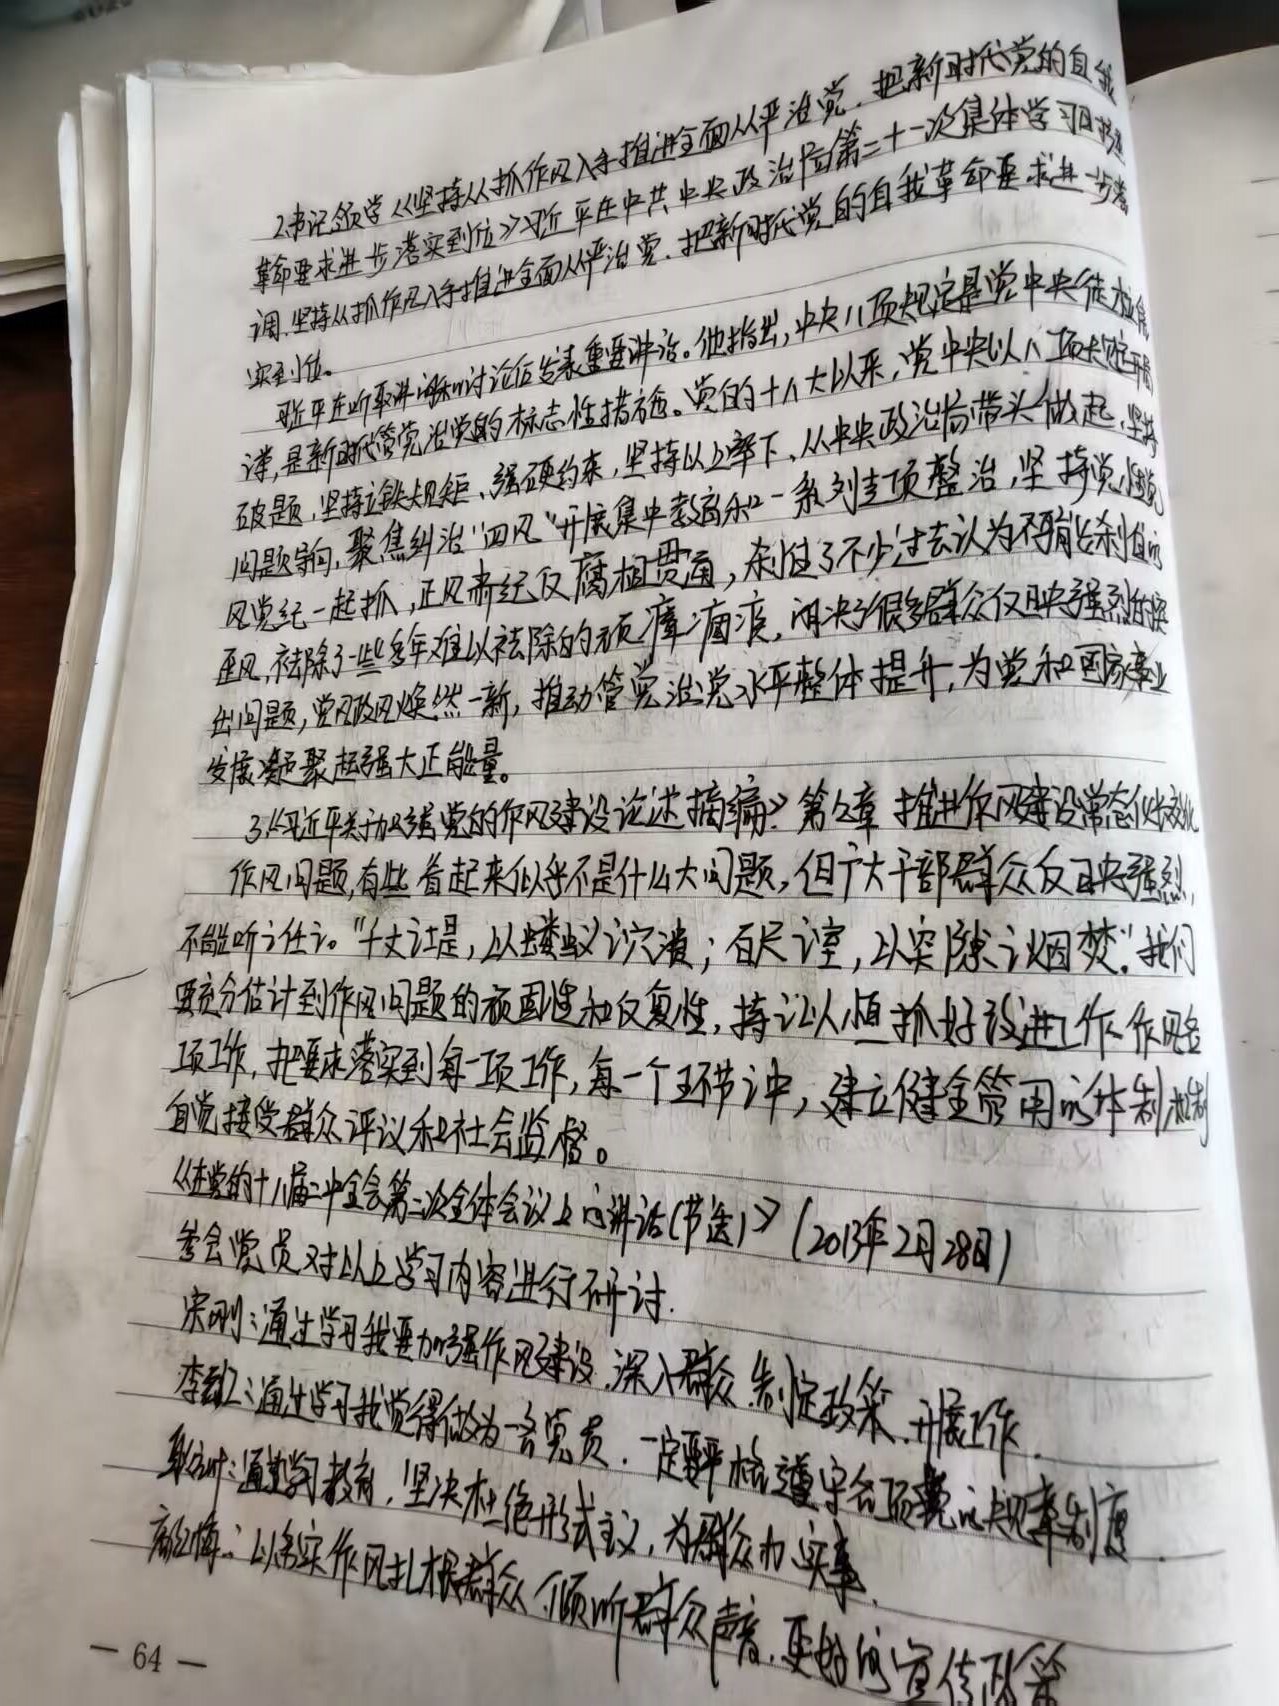 2.书记领学《坚持从抓作风入手推进全面从严治党,把新时代党的自我
革命要求进步落实到位》习近平在中共中央政治局第二十一次集体学习时强
调,坚持从抓作风入手推进全面从严治党,把新时代党的自我革命要求进一步落
实到位。
习近平在听取讲解和讨论后发表重要讲话。他指出,中央八项规定是党中央徙木立信
之举,是新时代管党治党的标志性措施。党的十八大以来,党中央以八项规定开局
破题,坚持立铁规矩、强硬约束,坚持以上率下、从中央政治局带头做起,坚持
问题导向,聚焦纠治"四风"开展集中教育和一系列专项整治,坚持党性党
风党纪一起抓,正风肃纪反腐相贯通,刹住了不少过去认为不可能刹住的
歪风,祛除了一些多年难以祛除的顽瘴痼疾,解决了很多群众反映强烈的突
出问题,党风政风焕然一新,推动管党治党水平整体提升,为党和国家事业
发展凝聚起强大正能量。
3.《习近平关于加强党的作风建设论述摘编》第 章 推进作风建设常态化长效化
作风问题,有些看起来似乎不是什么大问题,但广大干部群众反映强烈,
不能听之任之。"千丈之堤,以蝼蚁之穴溃;百尺之室,以突隙之烟焚"。我们
要充分估计到作风问题的顽固性和反复性,持之以恒抓好改进工作作风各
项工作,把要求落实到每一项工作,每一个环节之中,建立健全管用的体制机制
自觉接受群众评议和社会监督。
《在党的十八届二中全会第二次全体会议上的讲话(节选)》(2013年2月28日)
参会党员对以上学习内容进行研讨.
宋刚:通过学习我要加强作风建设,深入群众,制定政策,开展工作.
通过学习我觉得做为一名党员,一定要严格遵守各项党的规章制度.
通过学习教育,坚决杜绝形式主义,为群众办实事.
以务实作风扎根群众,倾听群众声音,更好的宣传政策
— 64 —